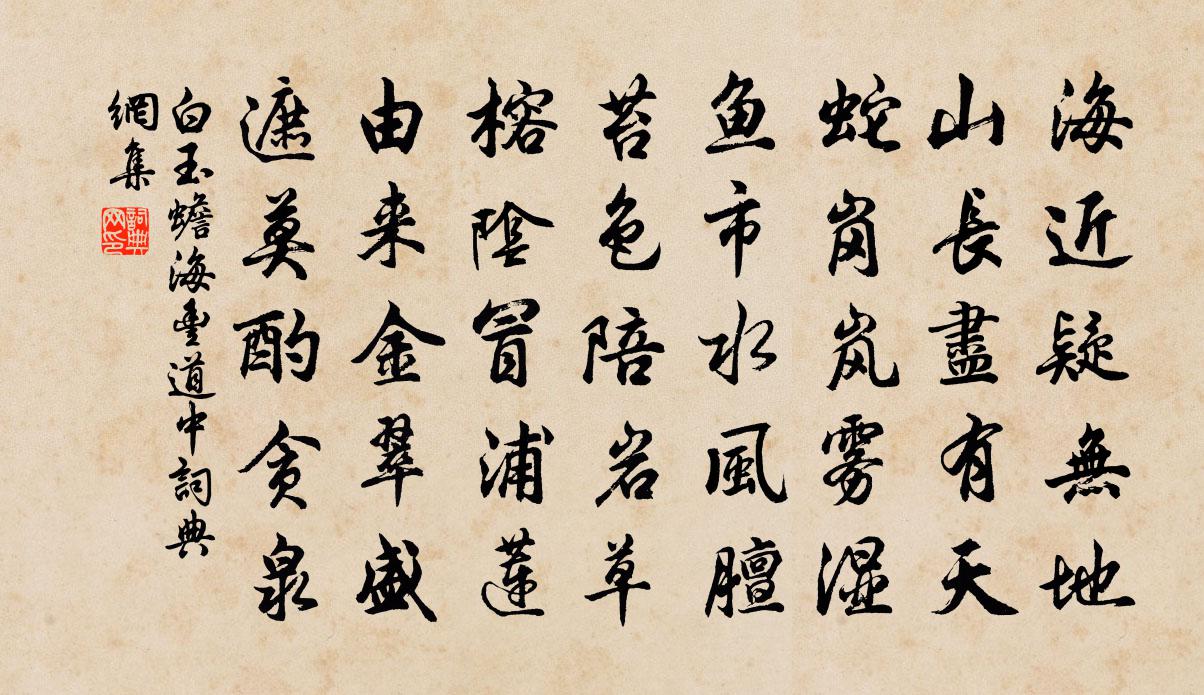 海近疑無地
山長盡有天
蛇岗岚雾湿
魚市水風膻
苔色陪岩草
榕陰冒浦蓮
由来金翠盛
遮莫酌贪泉
白玉蟾海豊道中詞典
網集
詞典
网印